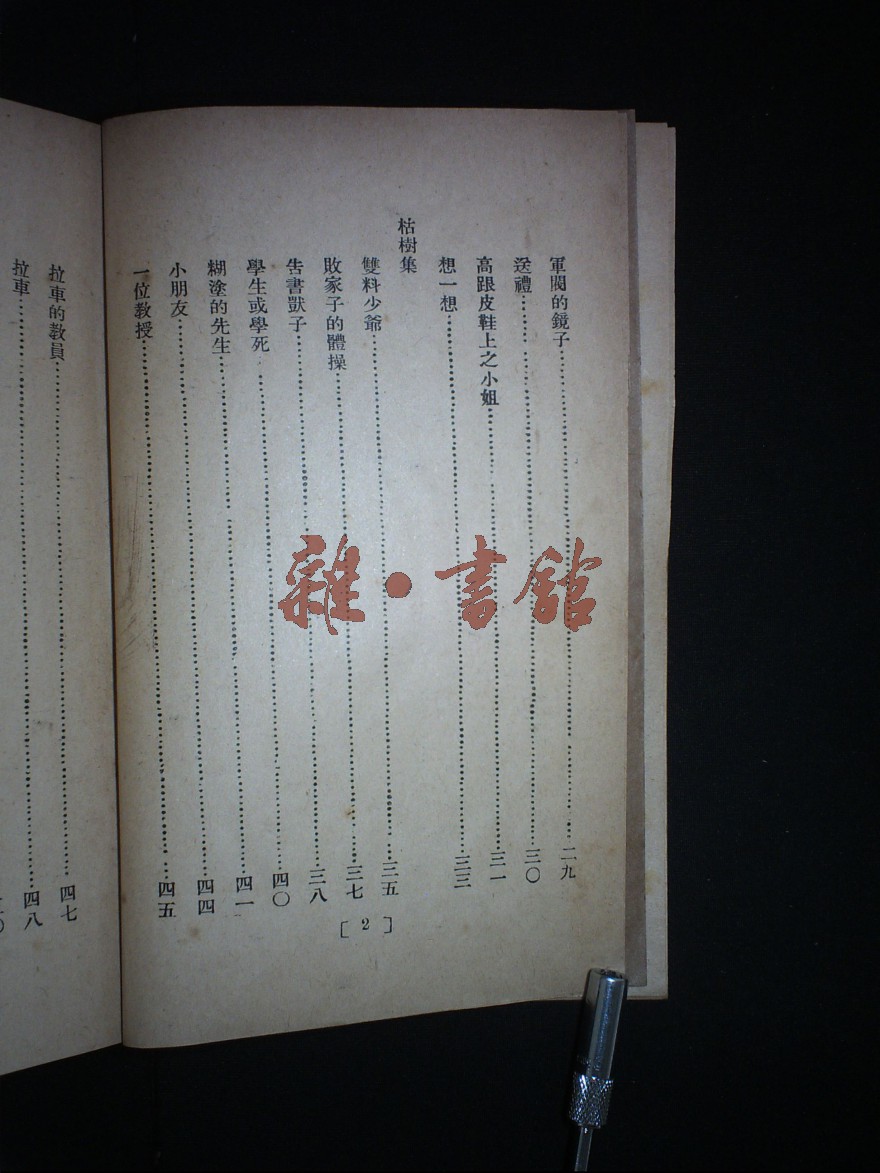 軍閥的鏡子……二九
送禮……三〇
高跟皮鞋上之小姐……三一
想一想……三三
枯樹集
雙料少爺……三五
敗家子的體操……三七
告書獃子……三八
學生或學死……四〇
糊塗的先生……四一
小朋友……四四
一位教授……四五
[ 2 ]
拉車的教員……四七
拉車……四八
雜·書館